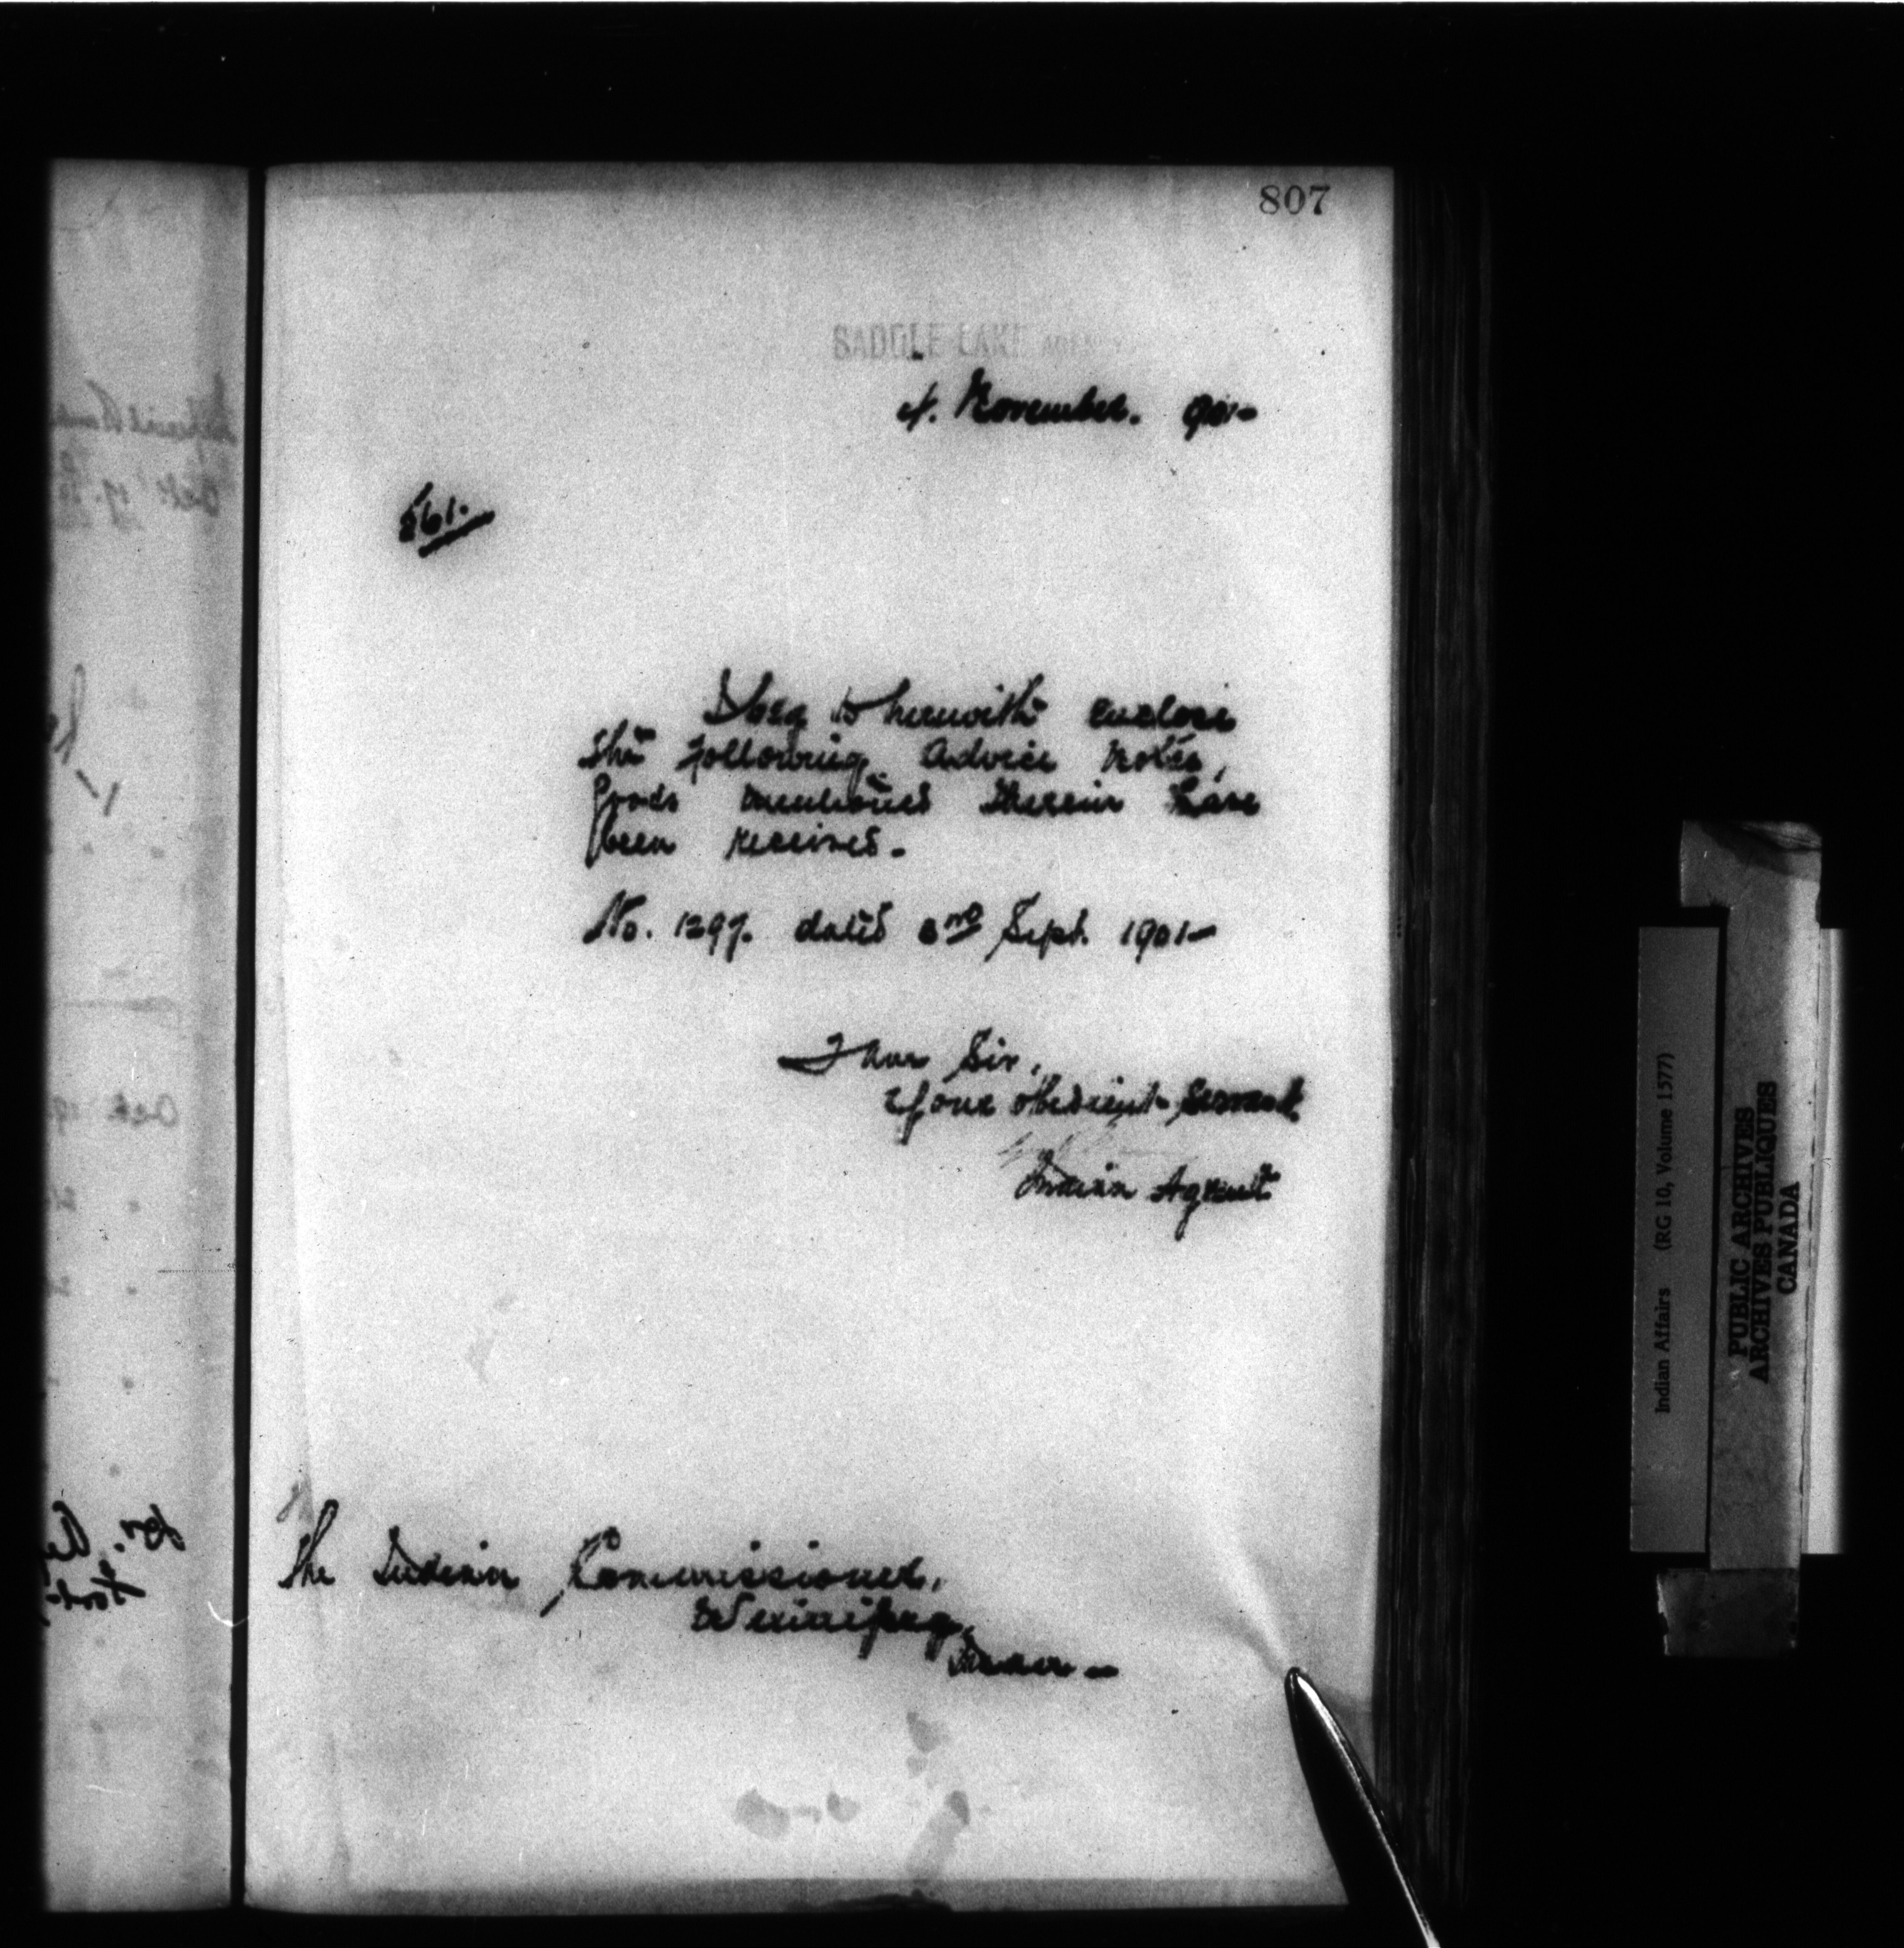 807
SADDLE LAKE AGENCY
4. November. 901-
561.
I beg to herewith enclose
the following Advice Notes,
Goods mentioned therein have
been received.-
No. 1297. dated 3rd Sept. 1901-
I am Sir,
Your obedient Servant
Indian Agent
The Indian Commissioner,
Winnipeg,
Man-
Indian Affairs (RG 10, Volume 1577)
PUBLIC ARCHIVES
ARCHIVES PUBLIQUES
CANADA